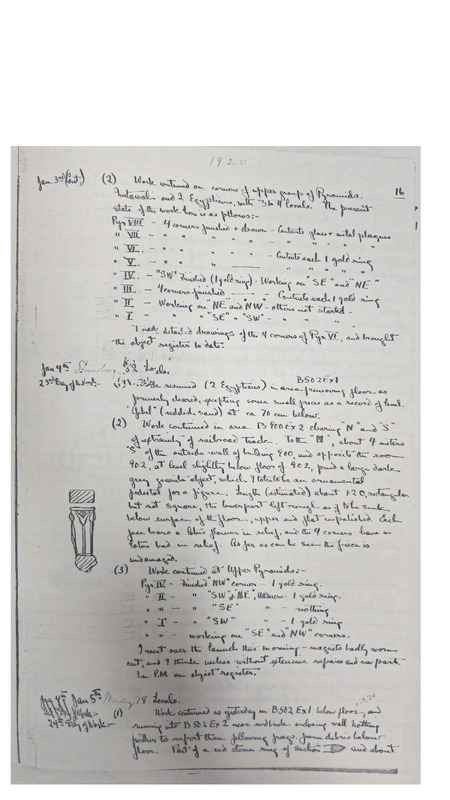 1920
Jan 3rd (Cont.) (2) Work continued on corners of upper group of Pyramids.
16
and 2 Egyptians, with 3 to 4 locals. The present
state of the work here is as follows:-
Pyr VIII - 4 corners finished + drawn - Contents glass + metal plaques
" VII - " " " " " " " "
" VI - " " " " - Contents each 1 gold ring
" V - " " " "
" IV - "SW" Finished (1 gold ring). Working on "SE" and "NE"
" III - 4 corners finished - Contents each 1 gold ring
" II - Working on NE and NW - others not started.
" I - " " "SE" + "SW" - " " "
I made detailed drawings of the 4 corners of Pyr VI, and brought
the object register to date.
Jan 4th Sunday 52 Locals.
23rd Day of Work:- (1) Work resumed (2 Egyptians) in area removing floor as
B 502 Ex 1
formerly cleared, excepting some small pieces as a record of level.
"Gebel" (reddish sand) at ca 70 cm below.
(2) Work continued in area B 900 Ex 2 clearing "N" and "S"
of extremity of railroad track. To the "N", about 4 meters
"S" of the outside wall of building 900, and opposite the room
902, at level slightly below floor of 902, found a large dark
grey granite object, which I take to be an ornamental
pedestal for a figure. Length (estimated) about 1.20, rectangular
but not square, the lower part left rough as if to be sunk
below surface of the floor, upper end flat unpolished. Each
face bears a lotus flower in relief, and the 4 corners have a
lotus bud in relief. As far as can be seen the piece is
undamaged.
(3) Work continued at Upper Pyramids:-
Pyr IV - Finished "NW" corner - 1 gold ring.
" II - " "SW" & "NE", corners - 1 gold ring.
" " - " "SE" " - nothing
" I - " "SW" " - 1 gold ring
" " - working on "SE" and "NW" corners.
I went over the launch this morning - magneto badly worn
out, and I think useless without extensive repairs and new parts.
In P.M. on object register.
Jan 5th Monday 18 Locals.
24th Day of Work:- (1) Work continued as yesterday in B 502 Ex 1 below floor, and
running into B 502 Ex 2 near mudbrick enclosing wall. Nothing
further to report than following frags. from debris below
floor. Part of a red stone ring of section and about